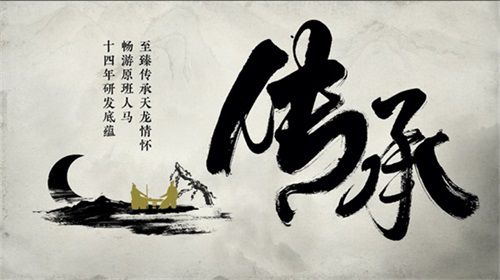 传承
至臻传承天龙情怀
畅游原班人马
十四年研发底蕴